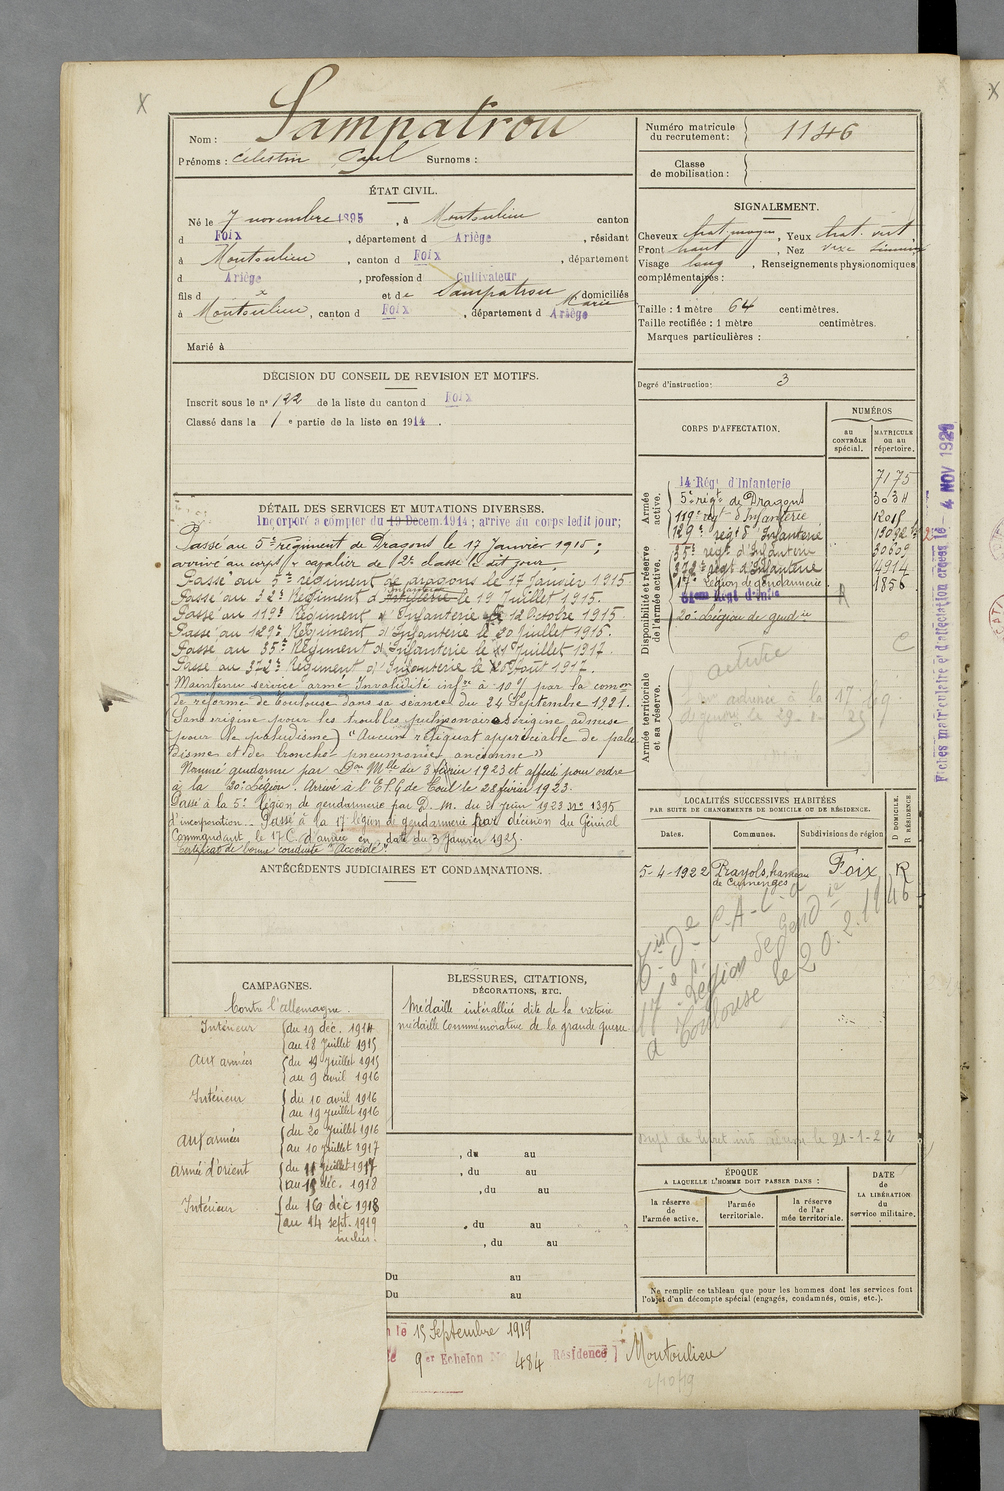 Nom : Sampatrou
Prénoms : Célestin Paul Surnoms :
ÉTAT CIVIL.
Né le 7 novembre 1895, à Montoulieu canton
d Foix, département d Ariège, résidant
à Montoulieu, canton d Foix, département
d Ariège, profession d Cultivateur
fils d x et de Sampatrou Marie domiciliés
à Montoulieu, canton d Foix, département d Ariège
Marié à
DÉCISION DU CONSEIL DE REVISION ET MOTIFS.
Inscrit sous le n° 122 de la liste du canton d Foix
Classé dans la 1 e partie de la liste en 1914.
DÉTAIL DES SERVICES ET MUTATIONS DIVERSES.
Incorporé à compter du 19 Decem.1914 ; arrivé au corps ledit jour;
Passé au 5e régiment de Dragons le 17 Janvier 1915 ;
arrivé au corps & cavalier de 2e classe le dit jour
Passé au 5e régiment de dragons le 17 Janvier 1915
Passé au 32e Régiment d'Infanterie le 19 Juillet 1915.
Passé au 119e Régiment d'Infanterie le 12 Octobre 1915
Passé au 129e Régiment d'Infanterie le 20 Juillet 1915.
Passé au 35e Régiment d'Infanterie le 11 Juillet 1917.
Passé au 372e Régiment d'Infanterie le Août 1917.
Maintenu service armé Invalidité infre à 10% par la comon
de réforme de Toulouse dans sa séance du 24 Septembre 1921.
Sans origine pour les troubles pulmonaires origine admise
pour le paludisme) "Aucun reliquat appréciable de palu
disme et de broncho pneumonie ancienne"
Nommé gendarme par Don Mlle du 3 février 1923 et affecté pour ordre
à la 20e Légion. Arrivé à l'E.P.G de Toul le 28 février 1923.
Passé à la 5e légion de gendarmerie par D. M. du 21 Juin 1923 No 1395
d'incorporation. Passé à la 17 légion de gendarmerie par décision du Général
Commandant le 17 C. d'armée en date du 3 Janvier 1925.
Certificat de bonne conduite "Accordé"
ANTÉCÉDENTS JUDICIAIRES ET CONDAMNATIONS.
CAMPAGNES.
Contre l'allemagne.
Intérieur du 19 déc. 1914
au 18 Juillet 1915
aux armées du 19 Juillet 1915
au 9 avril 1916
Intérieur du 10 avril 1916
au 19 Juillet 1916
aux armées du 20 Juillet 1916
au 10 Juillet 1917
armée d'orient du 11 Juillet 1917
au 15 déc. 1918
Intérieur du 16 déc 1918
au 14 sept. 1919
inclus.
BLESSURES, CITATIONS,
DÉCORATIONS, ETC.
Médaille interalliée dite de la victoire
médaille commémorative de la grande guerre
, du au
, du au
, du au
, du au
, du au
Du au
Du au
le 15 Septembre 1919
9 er Echelon N° 484 Résidence Montoulieu
2/10/19
Numéro matricule
du recrutement : 1146
Classe
de mobilisation :
SIGNALEMENT.
Cheveux chat. moyen, Yeux chat. vert
Front haut, Nez
Visage long, Renseignements physionomiques
complémentaires :
Taille : 1 mètre 64 centimètres.
Taille rectifiée : 1 mètre centimètres.
Marques particulières :
Degré d'instruction : 3
CORPS D'AFFECTATION.
NUMÉROS
au
CONTRÔLE
spécial.
MATRICULE
ou au
répertoire.
Armée
active.
Disponibilité et réserve
de l'armée active.
Armée territoriale
et sa réserve.
14 Régt d'Infanterie 7175
5e régt de Dragons 3034
119e regt d'Infanterie 12018
129e regt d'Infanterie
35e regt d'Infanterie 30609
372e regt d'Infanterie 4914
17e Légion de gendarmerie 1856
81eme Régt d'Infie
20e Légion de gendie
active
LOCALITÉS SUCCESSIVES HABITÉES
PAR SUITE DE CHANGEMENTS DE DOMICILE OU DE RÉSIDENCE.
Dates. Communes. Subdivisions de région
D DOMICILE.
R RÉSIDENCE
5-4-1922 Prayols, hameau Foix R
de Cumenges
17e Légion de Gendie
à Toulouse le 20.2.1946
ÉPOQUE
A LAQUELLE L'HOMME DOIT PASSER DANS :
la réserve
de
l'armée active.
l'armée
territoriale.
la réserve
de l'ar
mée territoriale.
DATE
de
LA LIBÉRATION
du
service militaire.
Ne remplir ce tableau que pour les hommes dont les services font
l'objet d'un décompte spécial (engagés, condamnés, omis, etc.).
Fiches matriculaire et d'affectation créées le - 4 NOV 1921